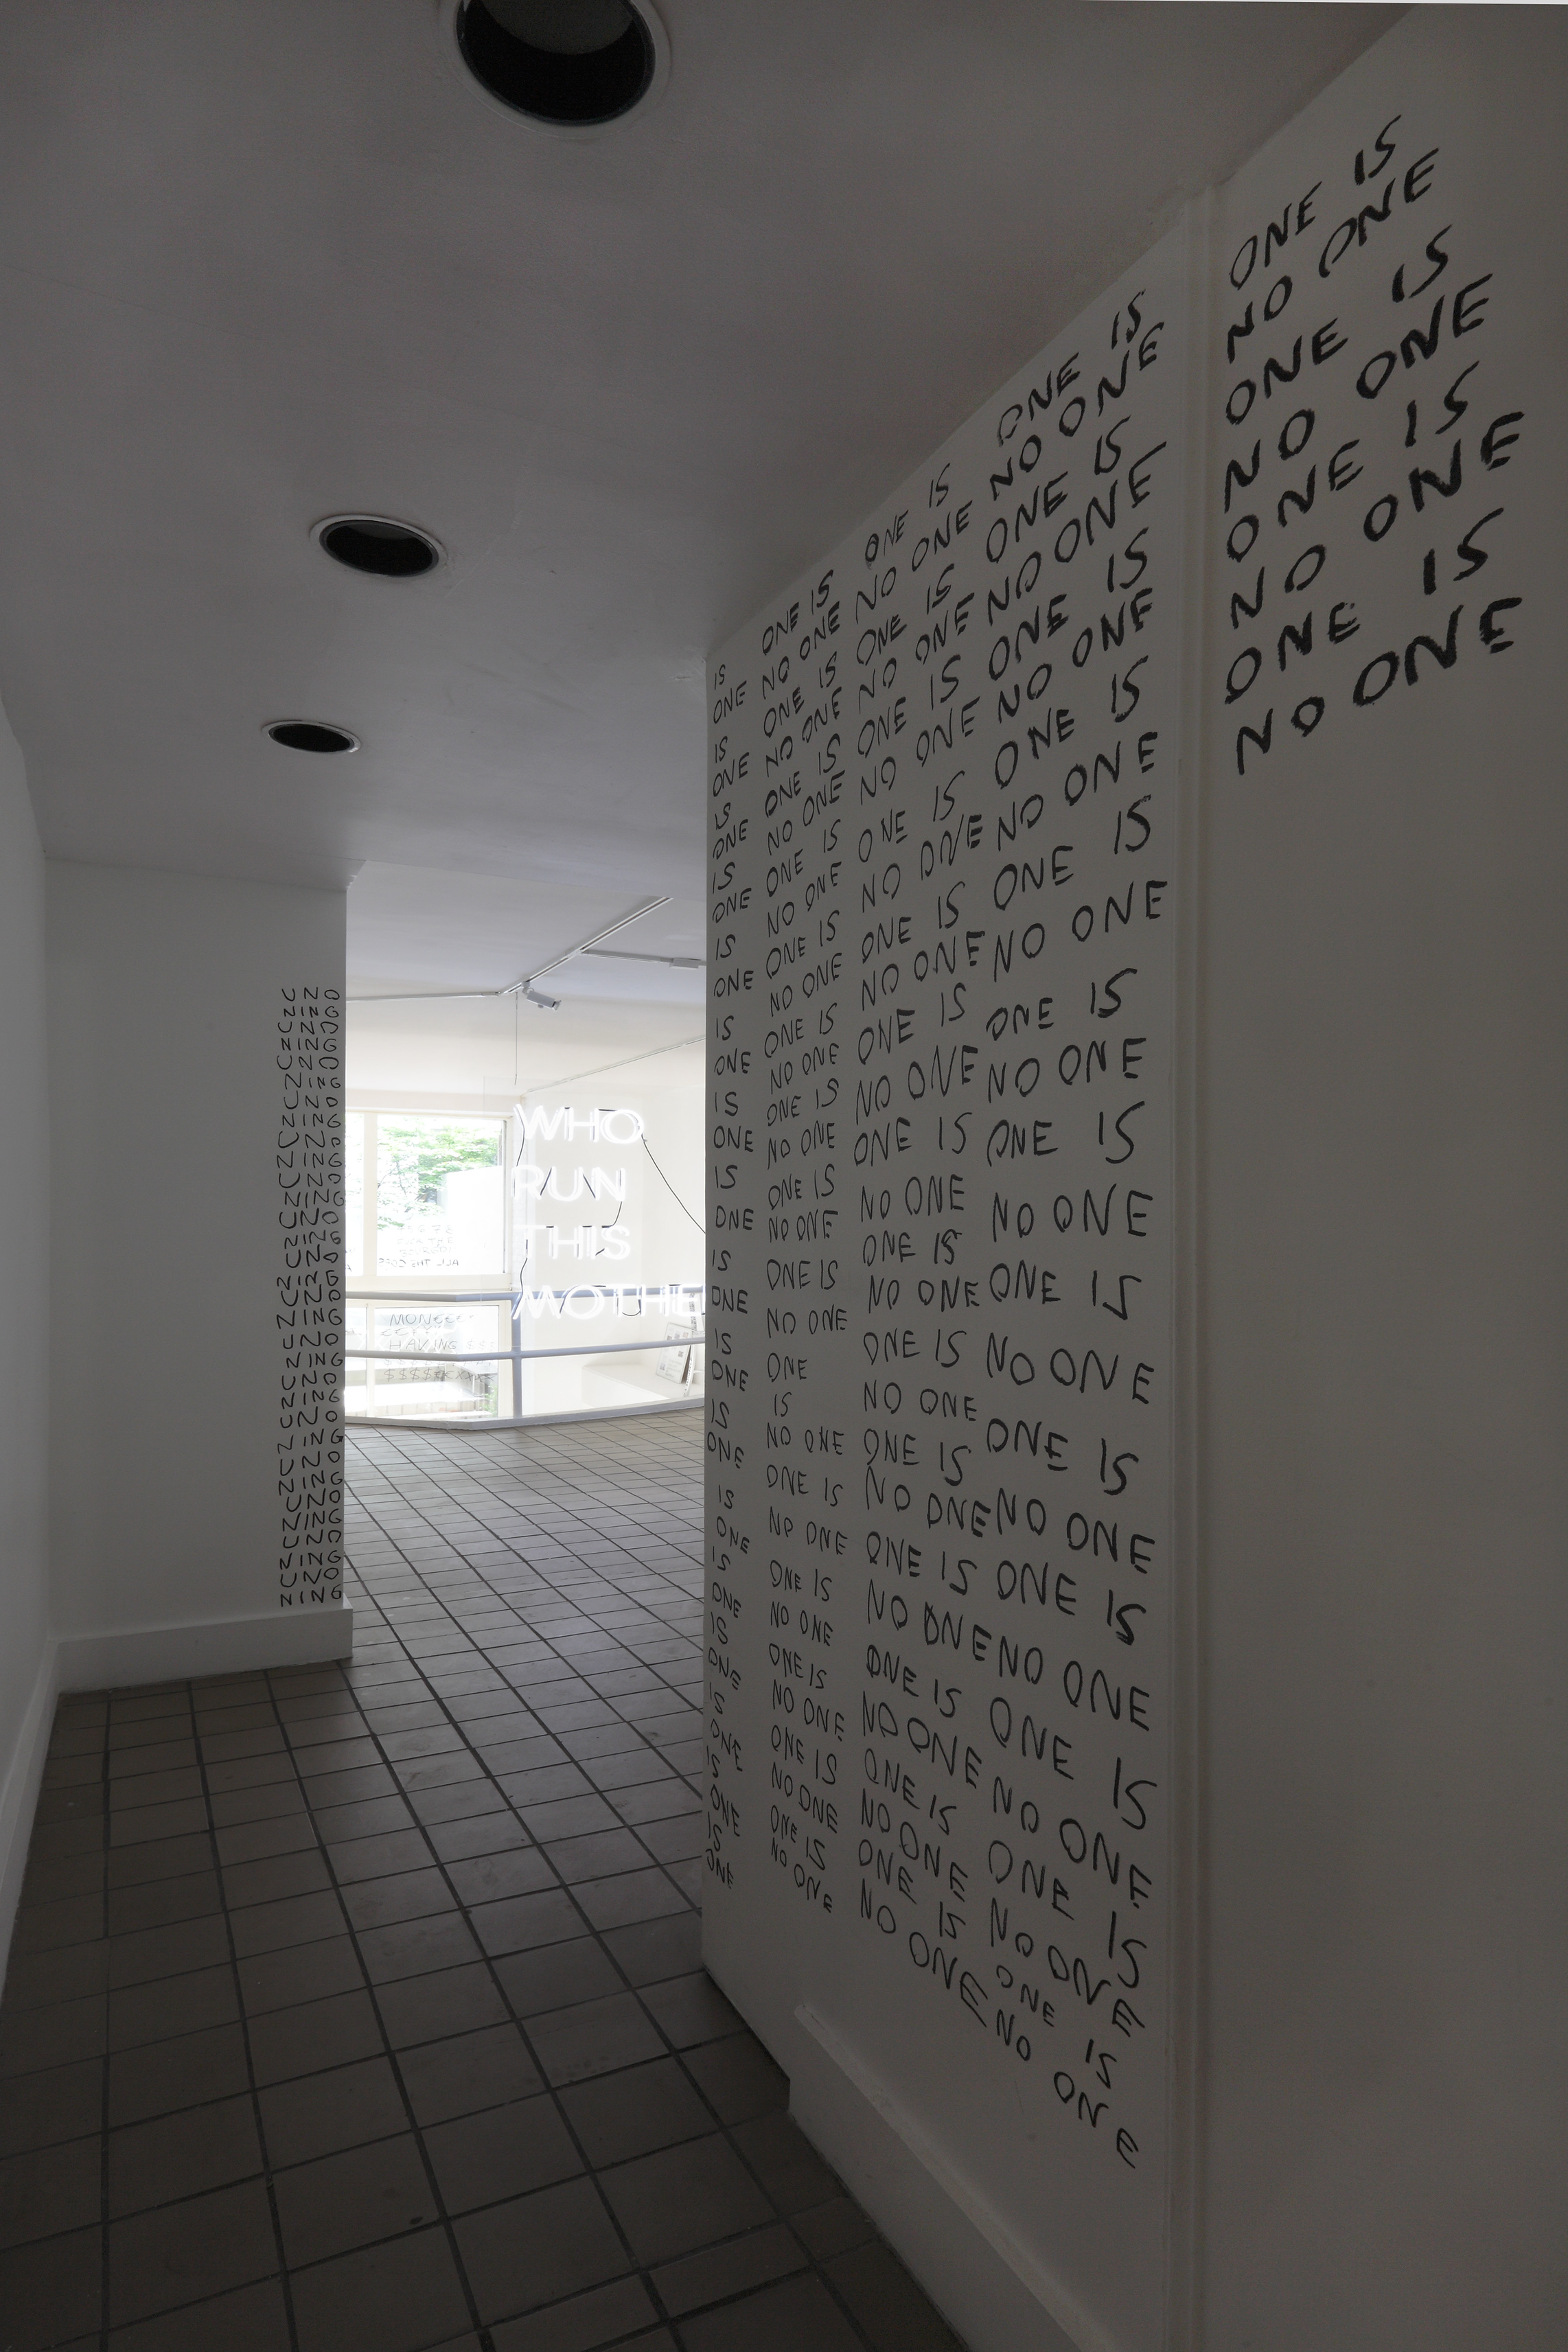 WHO
RUN
THIS
MOTHE
HAVING
IS
ONE
IS
ONE
IS
ONE
IS
ONE
IS
ONE
IS
ONE
IS
ONE
IS
ONE
IS
ONE
IS
ONE
IS
ONE
IS
ONE
IS
ONE
IS
ONE
IS
ONE
IS
ONE
IS
ONE
ONE IS
NO ONE
ONE IS
NO ONE
ONE IS
NO ONE
ONE IS
NO ONE
ONE IS
NO ONE
ONE IS
NO ONE
ONE IS
NO ONE
ONE IS
NO ONE
ONE IS
NO ONE
ONE
IS
NO ONE
ONE IS
NO ONE
ONE IS
NO ONE
ONE IS
NO ONE
ONE IS
NO ONE
ONE IS
NO ONE
ONE IS
NO ONE
ONE IS
NO ONE
ONE IS
NO ONE
ONE IS
NO ONE
ONE IS
NO ONE
ONE IS
NO ONE
ONE IS
NO ONE
ONE IS
NO ONE
ONE IS
NO ONE
ONE IS
NO ONE
ONE IS
NO ONE
ONE IS
NO ONE
ONE IS
NO ONE
ONE IS
NO ONE
ONE IS
NO ONE
ONE IS
NO ONE
ONE IS
NO ONE
ONE IS
NO ONE
ONE IS
NO ONE
ONE IS
NO ONE
ONE IS
NO ONE
ONE IS
NO ONE
ONE IS
NO ONE
ONE IS
NO ONE
ONE IS
NO ONE
ONE IS
NO ONE
ONE IS
NO ONE
ONE IS
NO ONE
ONE IS
NO ONE
ONE IS
NO ONE
ONE IS
NO ONE